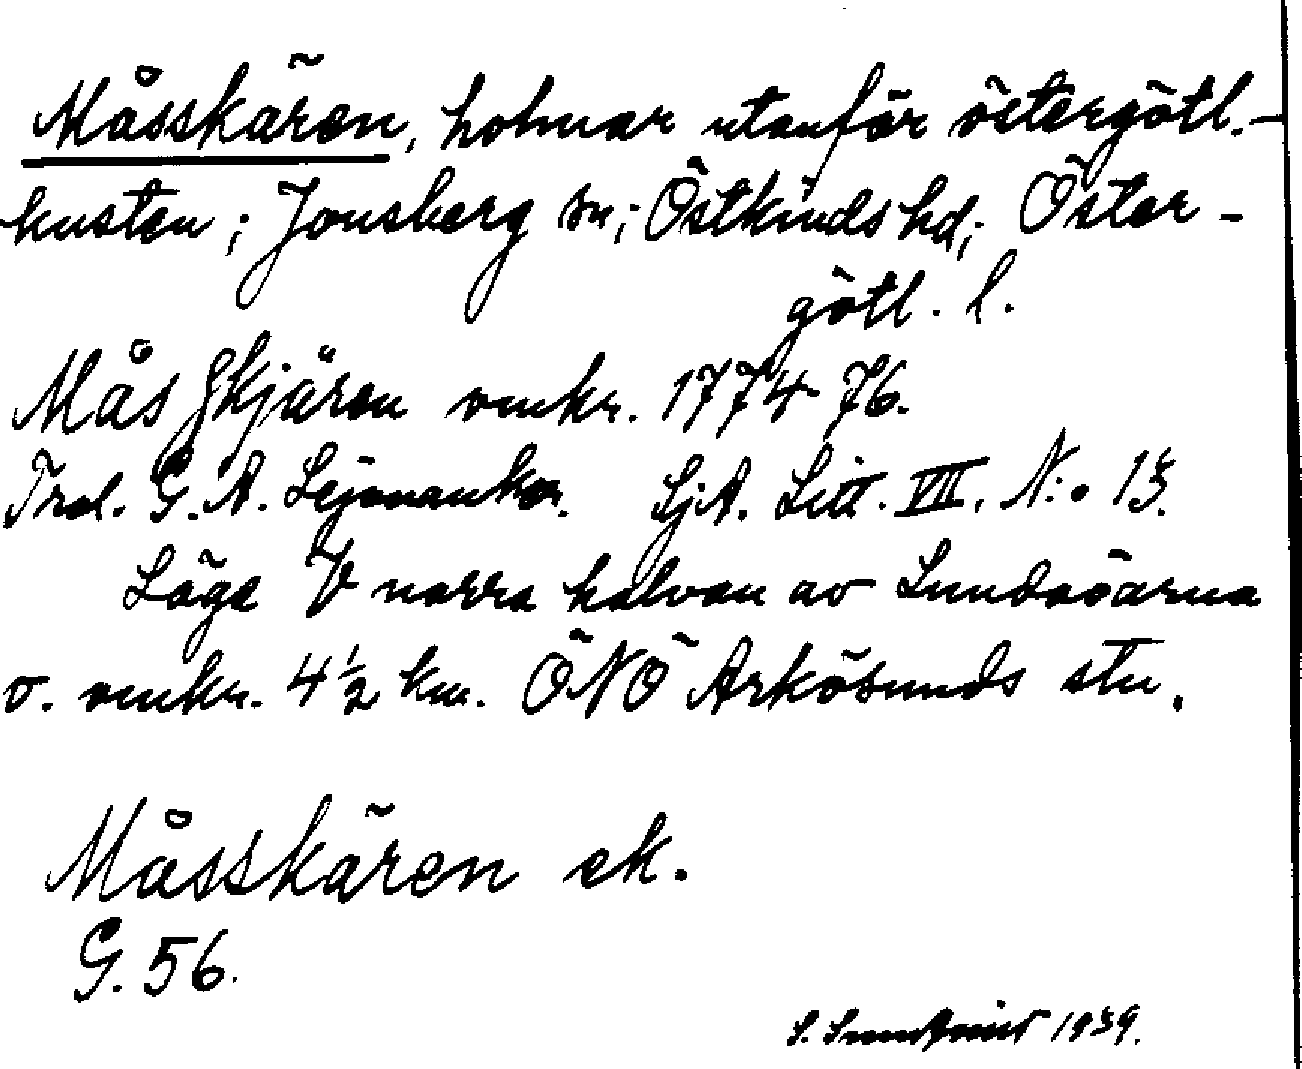 Måsskären, holmar utanför östergötl.-
kusten; Jonsberg sn; Östkinds hd; Öster-
götl. l.
Mås Skjären omkr. 1774-76.
Trol. G. A. Lejonankar. SjA. Litt. VII. N:o 13.
Läge V norra halvan av Lundaöarna
o. omkr. 4 ½ km. ÖNÖ Arkösunds stn.
Måsskären ek.
G. 56.
S. 1939.